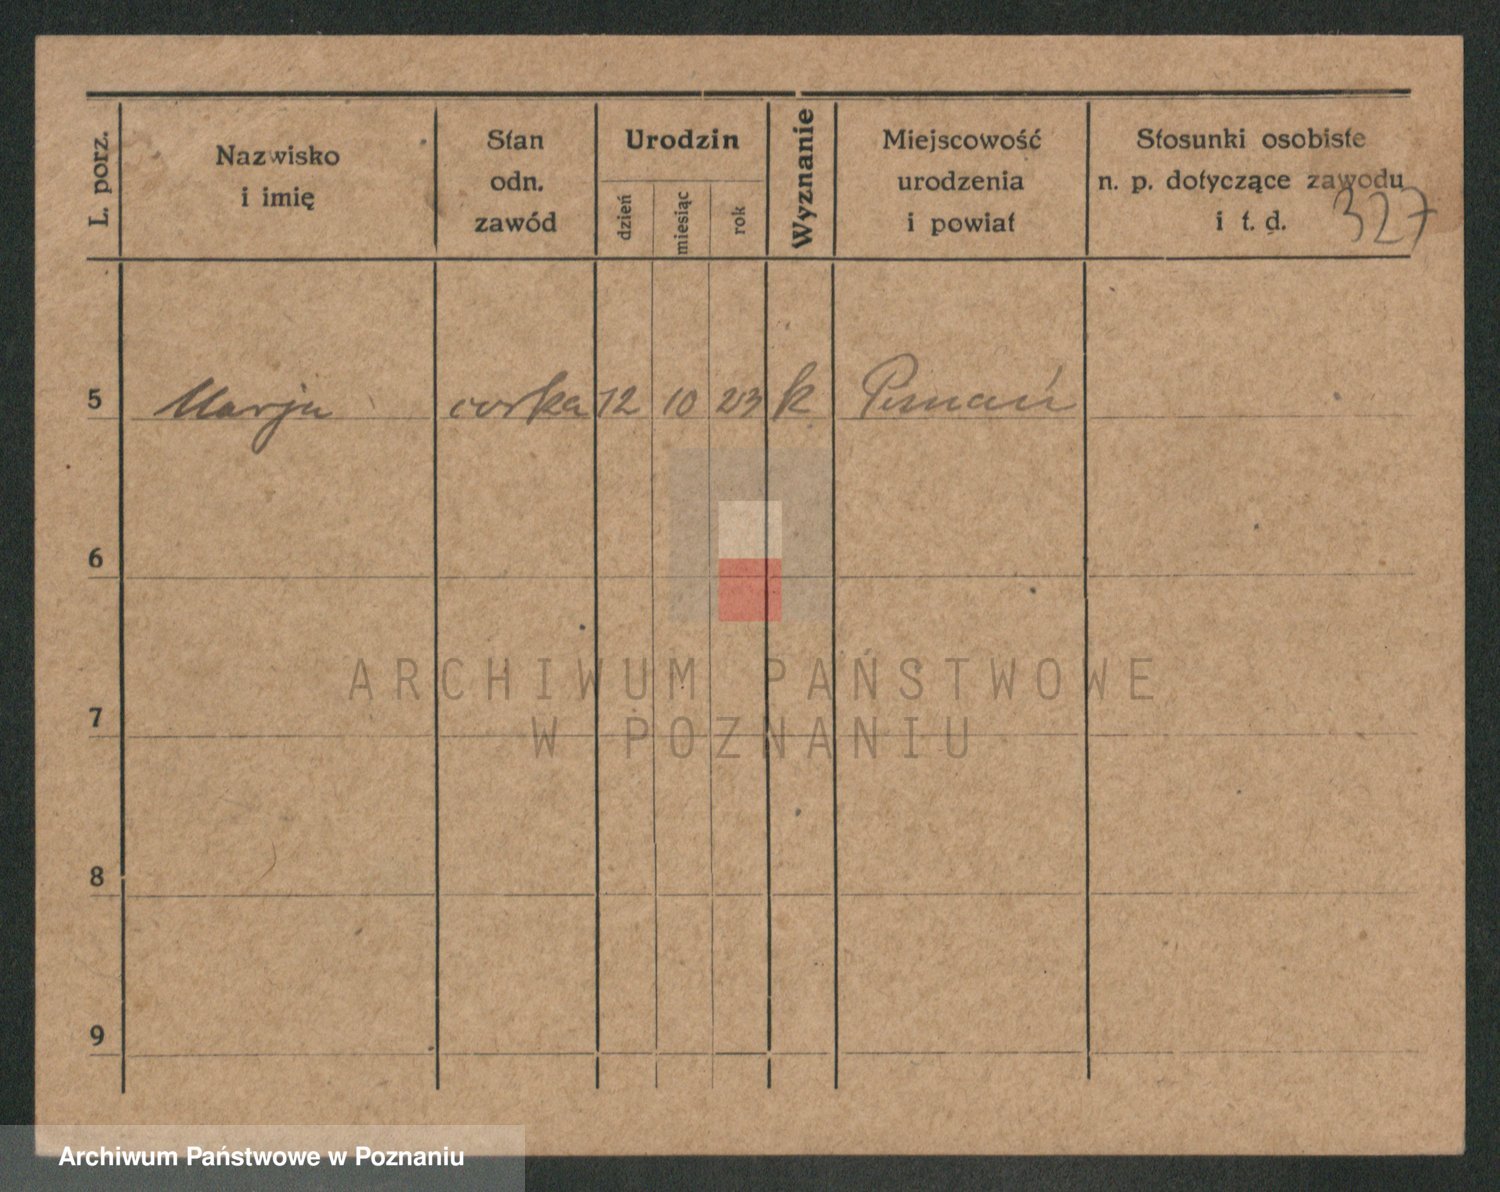 L. porz.
Nazwisko
i imię
Stan
odn.
zawód
Urodzin
dzień
miesiąc
rok
Wyznanie
Miejscowość
urodzenia
i powiat
Stosunki osobiste
n. p. dotyczące zawodu
i t. d.
327
5 Marja córka 12 10 23 k Poznań
6
7
8
9
ARCHIWUM PAŃSTWOWE
W POZNANIU
Archiwum Państwowe w Poznaniu